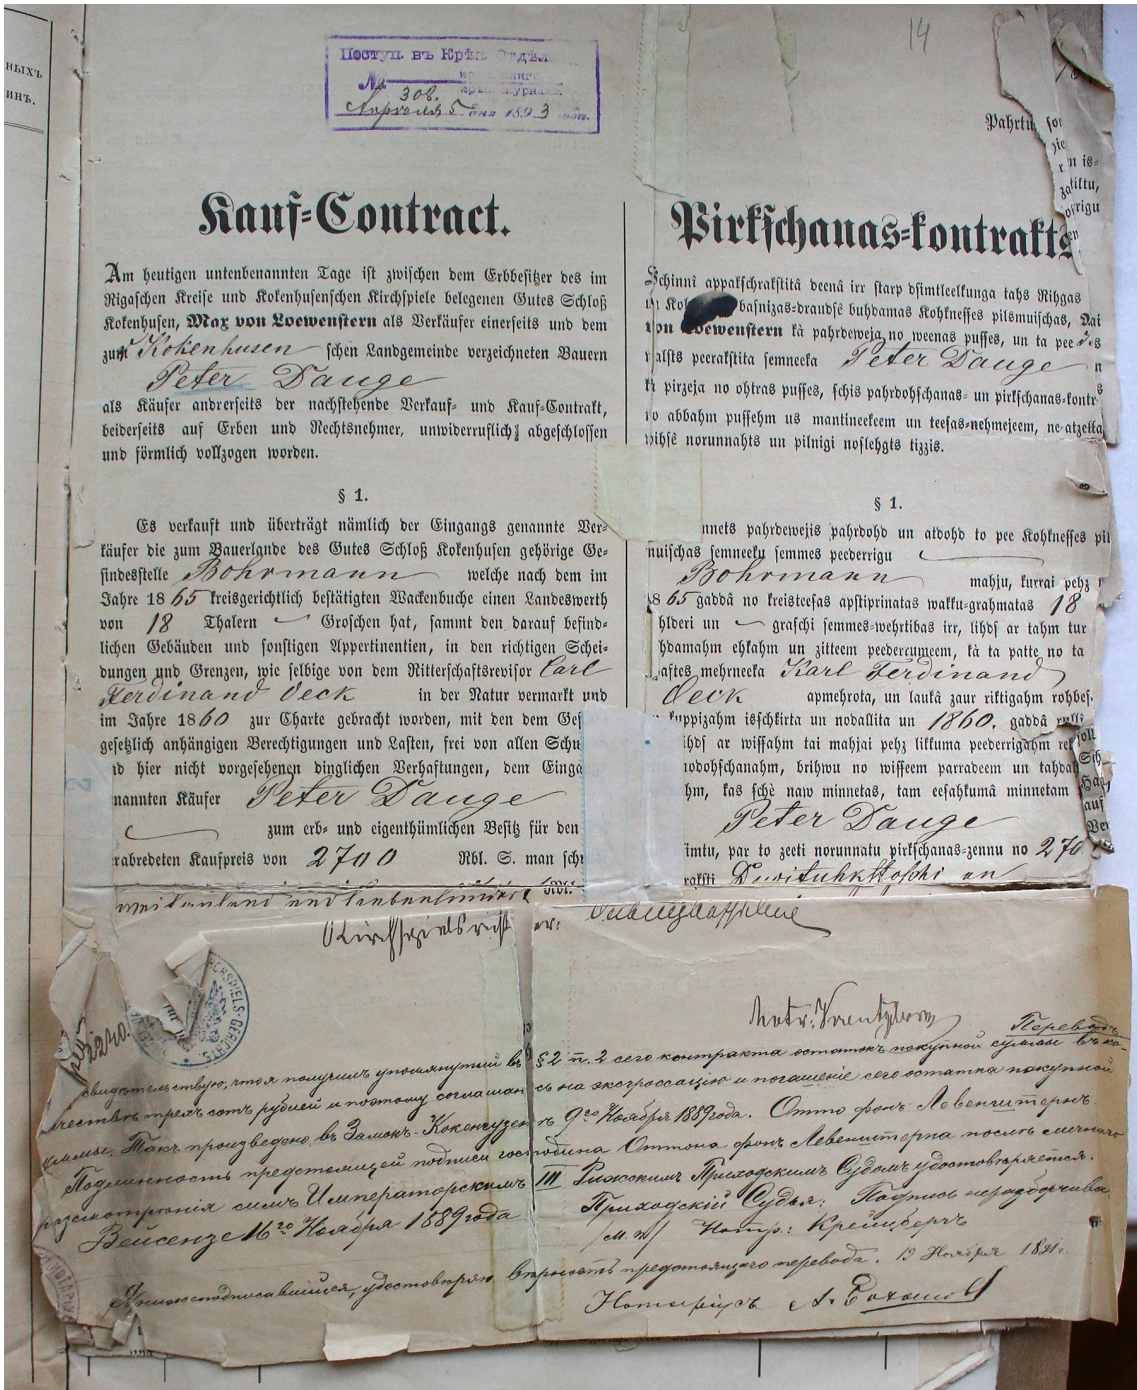 14
ныхъ
инъ.
Поступ. въ Крѣп. Отдѣл.
№ 308.
Апрѣля 5 дня 1893
Kauf-Contract.
Am heutigen untenbenannten Tage ist zwischen dem Erbbesitzer des im
Rigaschen Kreise und Kokenhusenschen Kirchspiele belegenen Gutes Schloß
Kokenhusen, Max von Loewenstern als Verkäufer einerseits und dem
zur Kokenhusen schen Landgemeinde verzeichneten Bauern
Peter Dauge
als Käufer andrerseits der nachstehende Verkauf- und Kauf-Contrakt,
beiderseits auf Erben und Rechtsnehmer, unwiderruflich abgeschlossen
und förmlich vollzogen worden.
§ 1.
Es verkauft und überträgt nämlich der Eingangs genannte Ver-
käufer die zum Bauerlande des Gutes Schloß Kokenhusen gehörige Ge-
sindesstelle Bohrmann welche nach dem im
Jahre 1865 kreisgerichtlich bestätigten Wackenbuche einen Landeswerth
von 18 Thalern — Groschen hat, sammt den darauf befind-
lichen Gebäuden und sonstigen Appertinentien, in den richtigen Schei-
dungen und Grenzen, wie selbige von dem Ritterschaftsrevisor Carl
Ferdinand Oeck in der Natur vermarkt und
im Jahre 1860 zur Charte gebracht worden, mit den dem Ges
gesetzlich anhängigen Berechtigungen und Lasten, frei von allen Schu
nd hier nicht vorgesehenen dinglichen Verhaftungen, dem Einga
nannten Käufer Peter Dauge
zum erb- und eigenthümlichen Besitz für den
rabredeten Kaufpreis von 2700 Rbl. S. man schr
weitausend und siebenhundert Rbl.
Pahrtu
Pirkschanas-kontrakts
Schinnî appakschrakstitâ deenâ irr starp dsimtleelkunga tahs Rihgas
basnizas-draudsê buhdamas Kohkneffes pilsmuischas,
von Loewenstern kà pahrdeweja no weenas puffes, un ta pee
walsts peerakstita semneeka Peter Dauge
kà pirzeja no ohtras puffes, schis pahrdohschanas- un pirkschanas-kontr
no abbahm puffehm us mantineekeem un teesas-nehmejeem, ne-atzelta
wihsê norunnahts un pilnigi noslehgts tizzis.
§ 1.
nnets pahrdewejis pahrdohd un atdohd to pee Kohkneffes pil
muischas semneeku semmes peederrigu
Bohrmann mahju, kurrai pehz
1865 gaddâ no kreisteesas apstiprinatas wakku-grahmatas 18
hlderi un — graschi semmes-wehrtibas irr, lihds ar tahm tur
hdamahm ehkahm un zitteem peederrumeem, kà ta patte no ta
mehrneeka Karl Ferdinand
Oeck apmehrota, un laukâ zaur riktigahm rohbes
kuppizahm isschkirta un nodallita un 1860. gaddâ
ihds ar wissahm tai mahjai pehz likkuma peederrigahm
nodohschanahm, brihwu no wisseem parradeem un tahdah
hm, kas schê naw minnetas, tam eesahkumâ minnetam
Peter Dauge
simtu, par to zeeti norunnatu pirkschanas-zennu no 270
raksti Diwituhkstoschi un
Kirchspielsrichter:
KIRCHSPIELS-GERICHTS
III
2240.
Notr. Kreutzberg
Переводъ
свидѣтельствую, что я получилъ упомянутый въ § 2 п. 2 сего контракта остатокъ покупной суммы въ ко-
личествѣ трехъ сотъ рублей и поэтому соглашаюсь на эксгроссацію и погашеніе сего остатка покупной
суммы. Такъ произведено въ Замокъ-Кокенгузенѣ 9го Ноября 1889 года. Отто фонъ Левенштернъ.
Подлинность предстоящей подписи господина Оттона фонъ Левенштерна послѣ личнаго
разсмотрѣнія симъ Императорскимъ III Рижскимъ Приходскимъ Судомъ удостовѣряется.
Вейсензе 16го Ноября 1889 года Приходскій Судья: Подпись неразборчива
/м.п./ Нотр: Крейцбергъ
Я нижеподписавшійся, удостовѣряю вѣрность предстоящаго перевода. 19 Ноября 1891 г.
Нотаріусъ А.